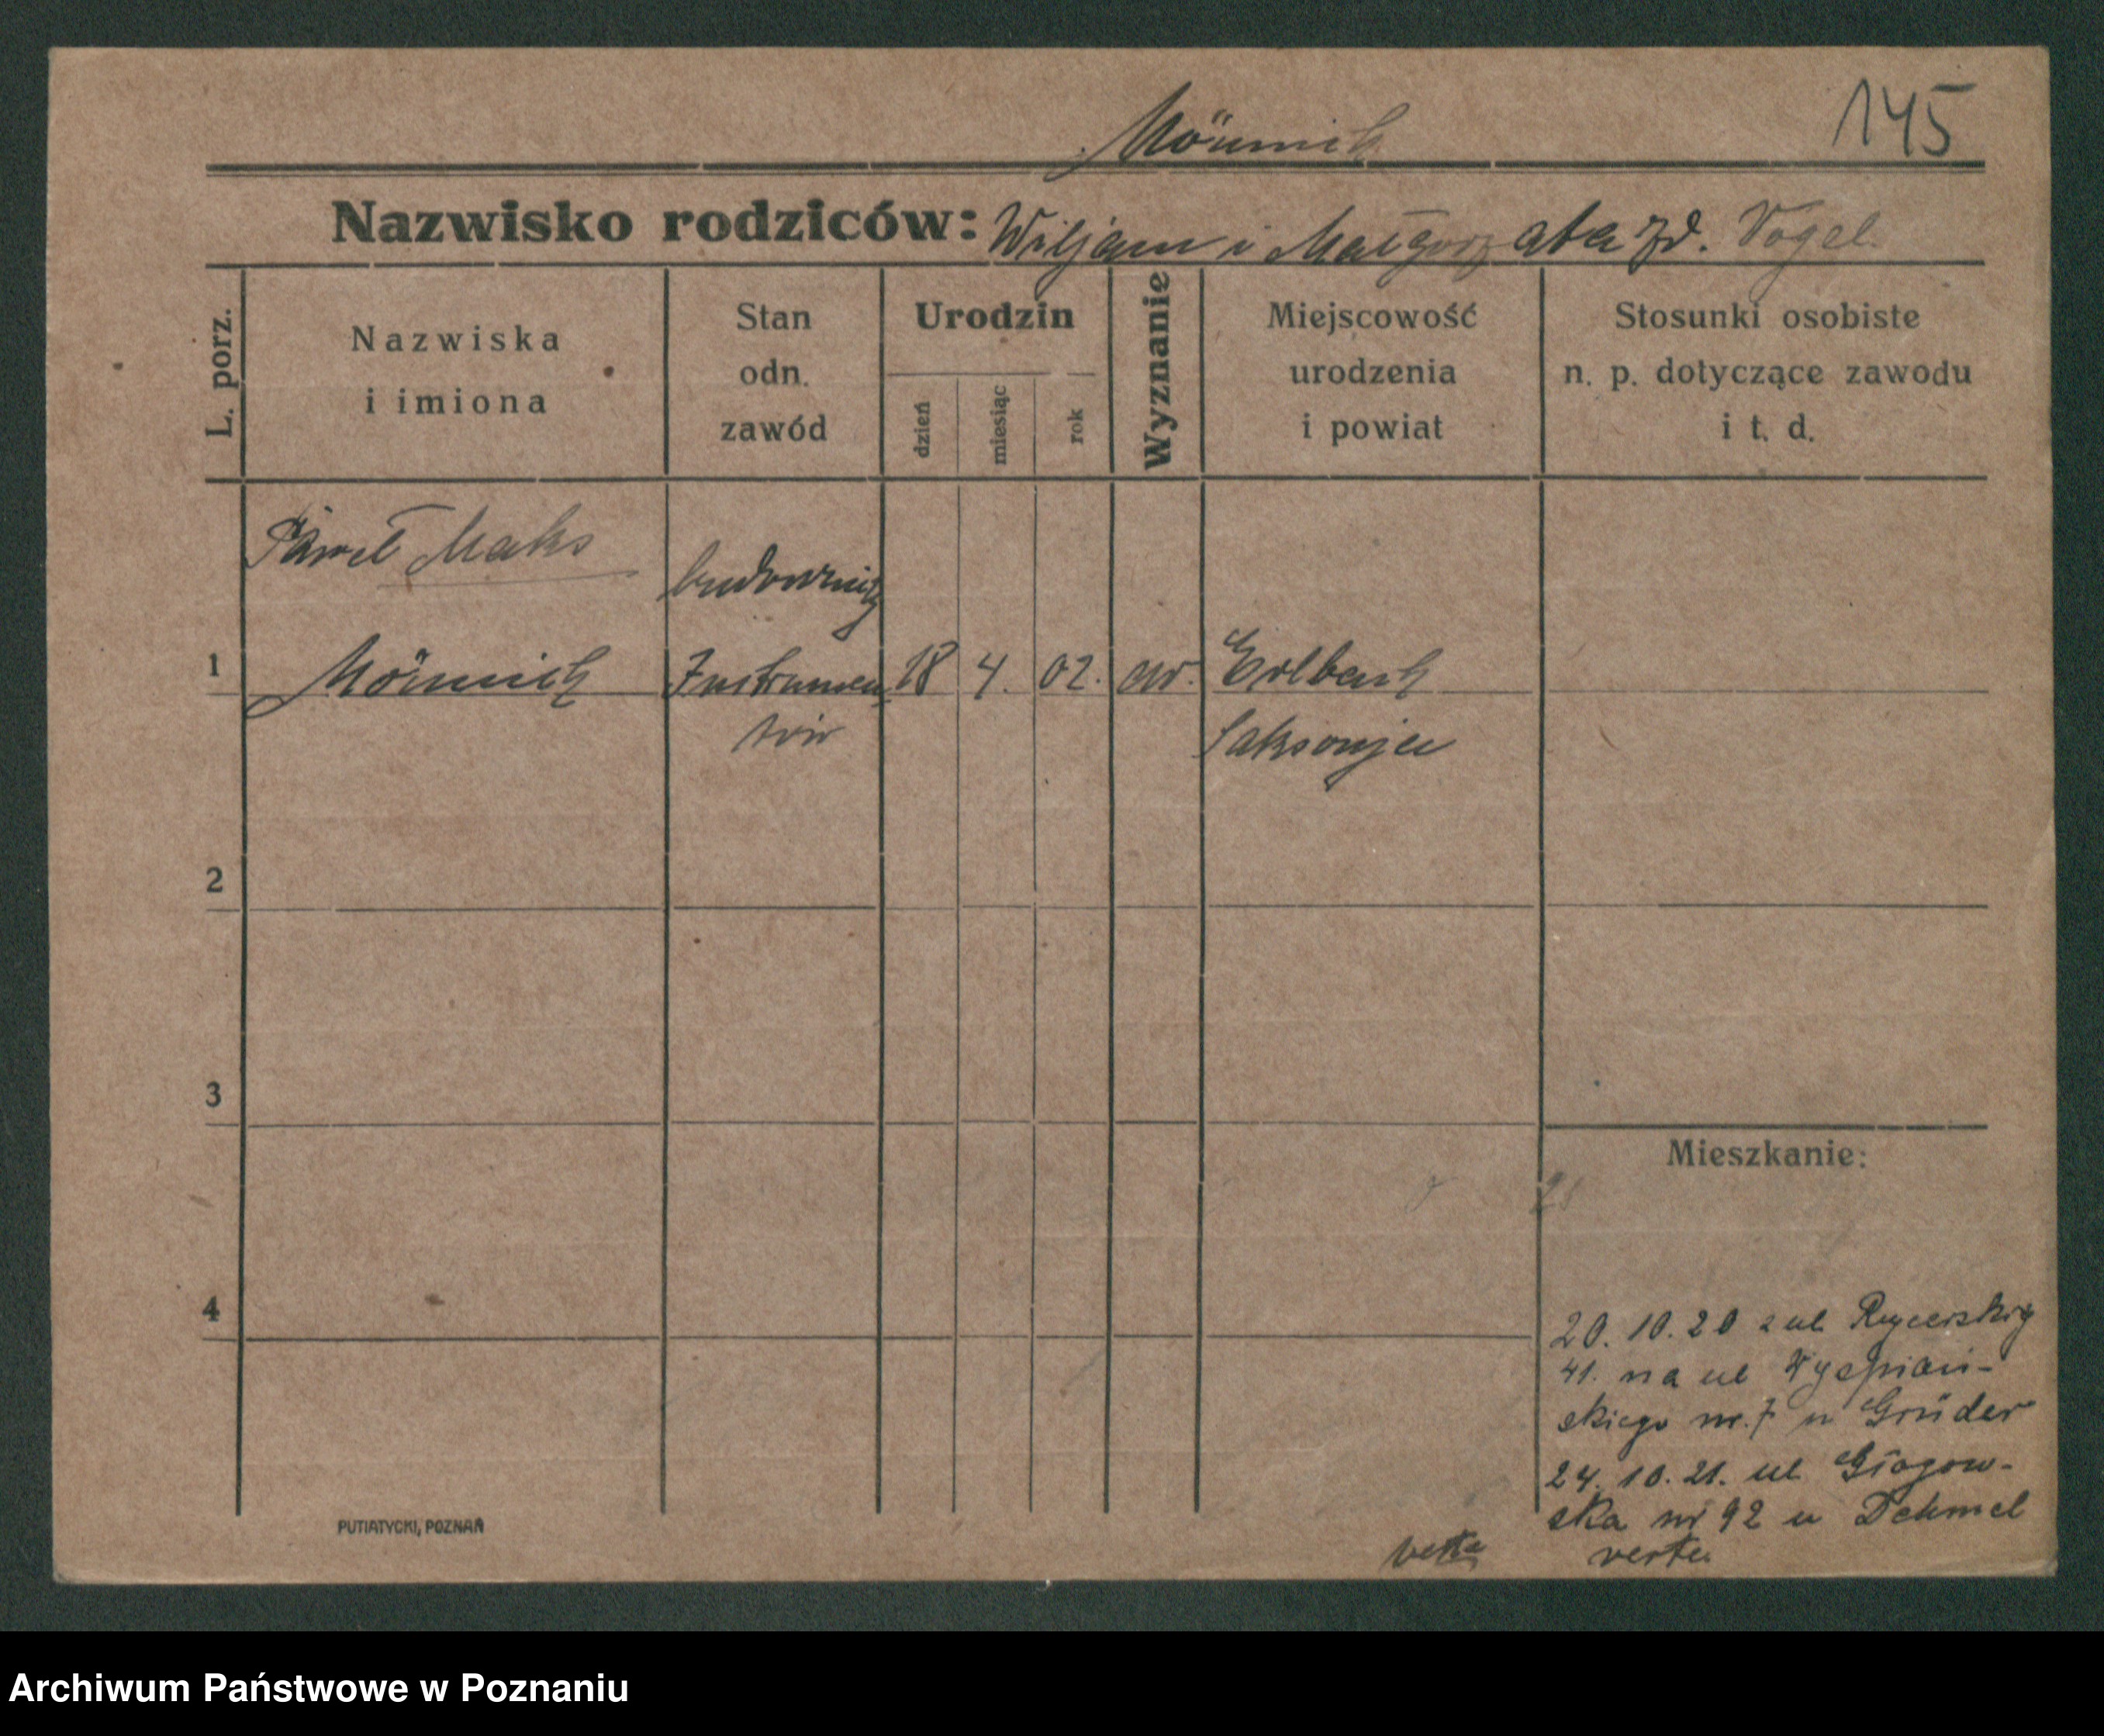 Mönnich
145
Nazwisko rodziców: Wiljam i Małgorzata zd. Vogel.
L. porz.
Nazwiska
i imiona
Stan
odn.
zawód
Urodzin
dzień
miesiąc
rok
Wyznanie
Miejscowość
urodzenia
i powiat
Stosunki osobiste
n. p. dotyczące zawodu
i t. d.
Paweł Maks
budowniczy
1 Mönnich Instrumen 18 4. 02. ew. Erlbach
tów Saksonja
2
3
Mieszkanie:
4
20. 10. 20 z ul Rycerskiej
41. na ul Wyspiań-
skiego nr. 7 u Grüder
24. 10. 21. ul Głogow-
ska nr 92 u Dehmel
verte verte.
PUTIATYCKI, POZNAŃ
Archiwum Państwowe w Poznaniu